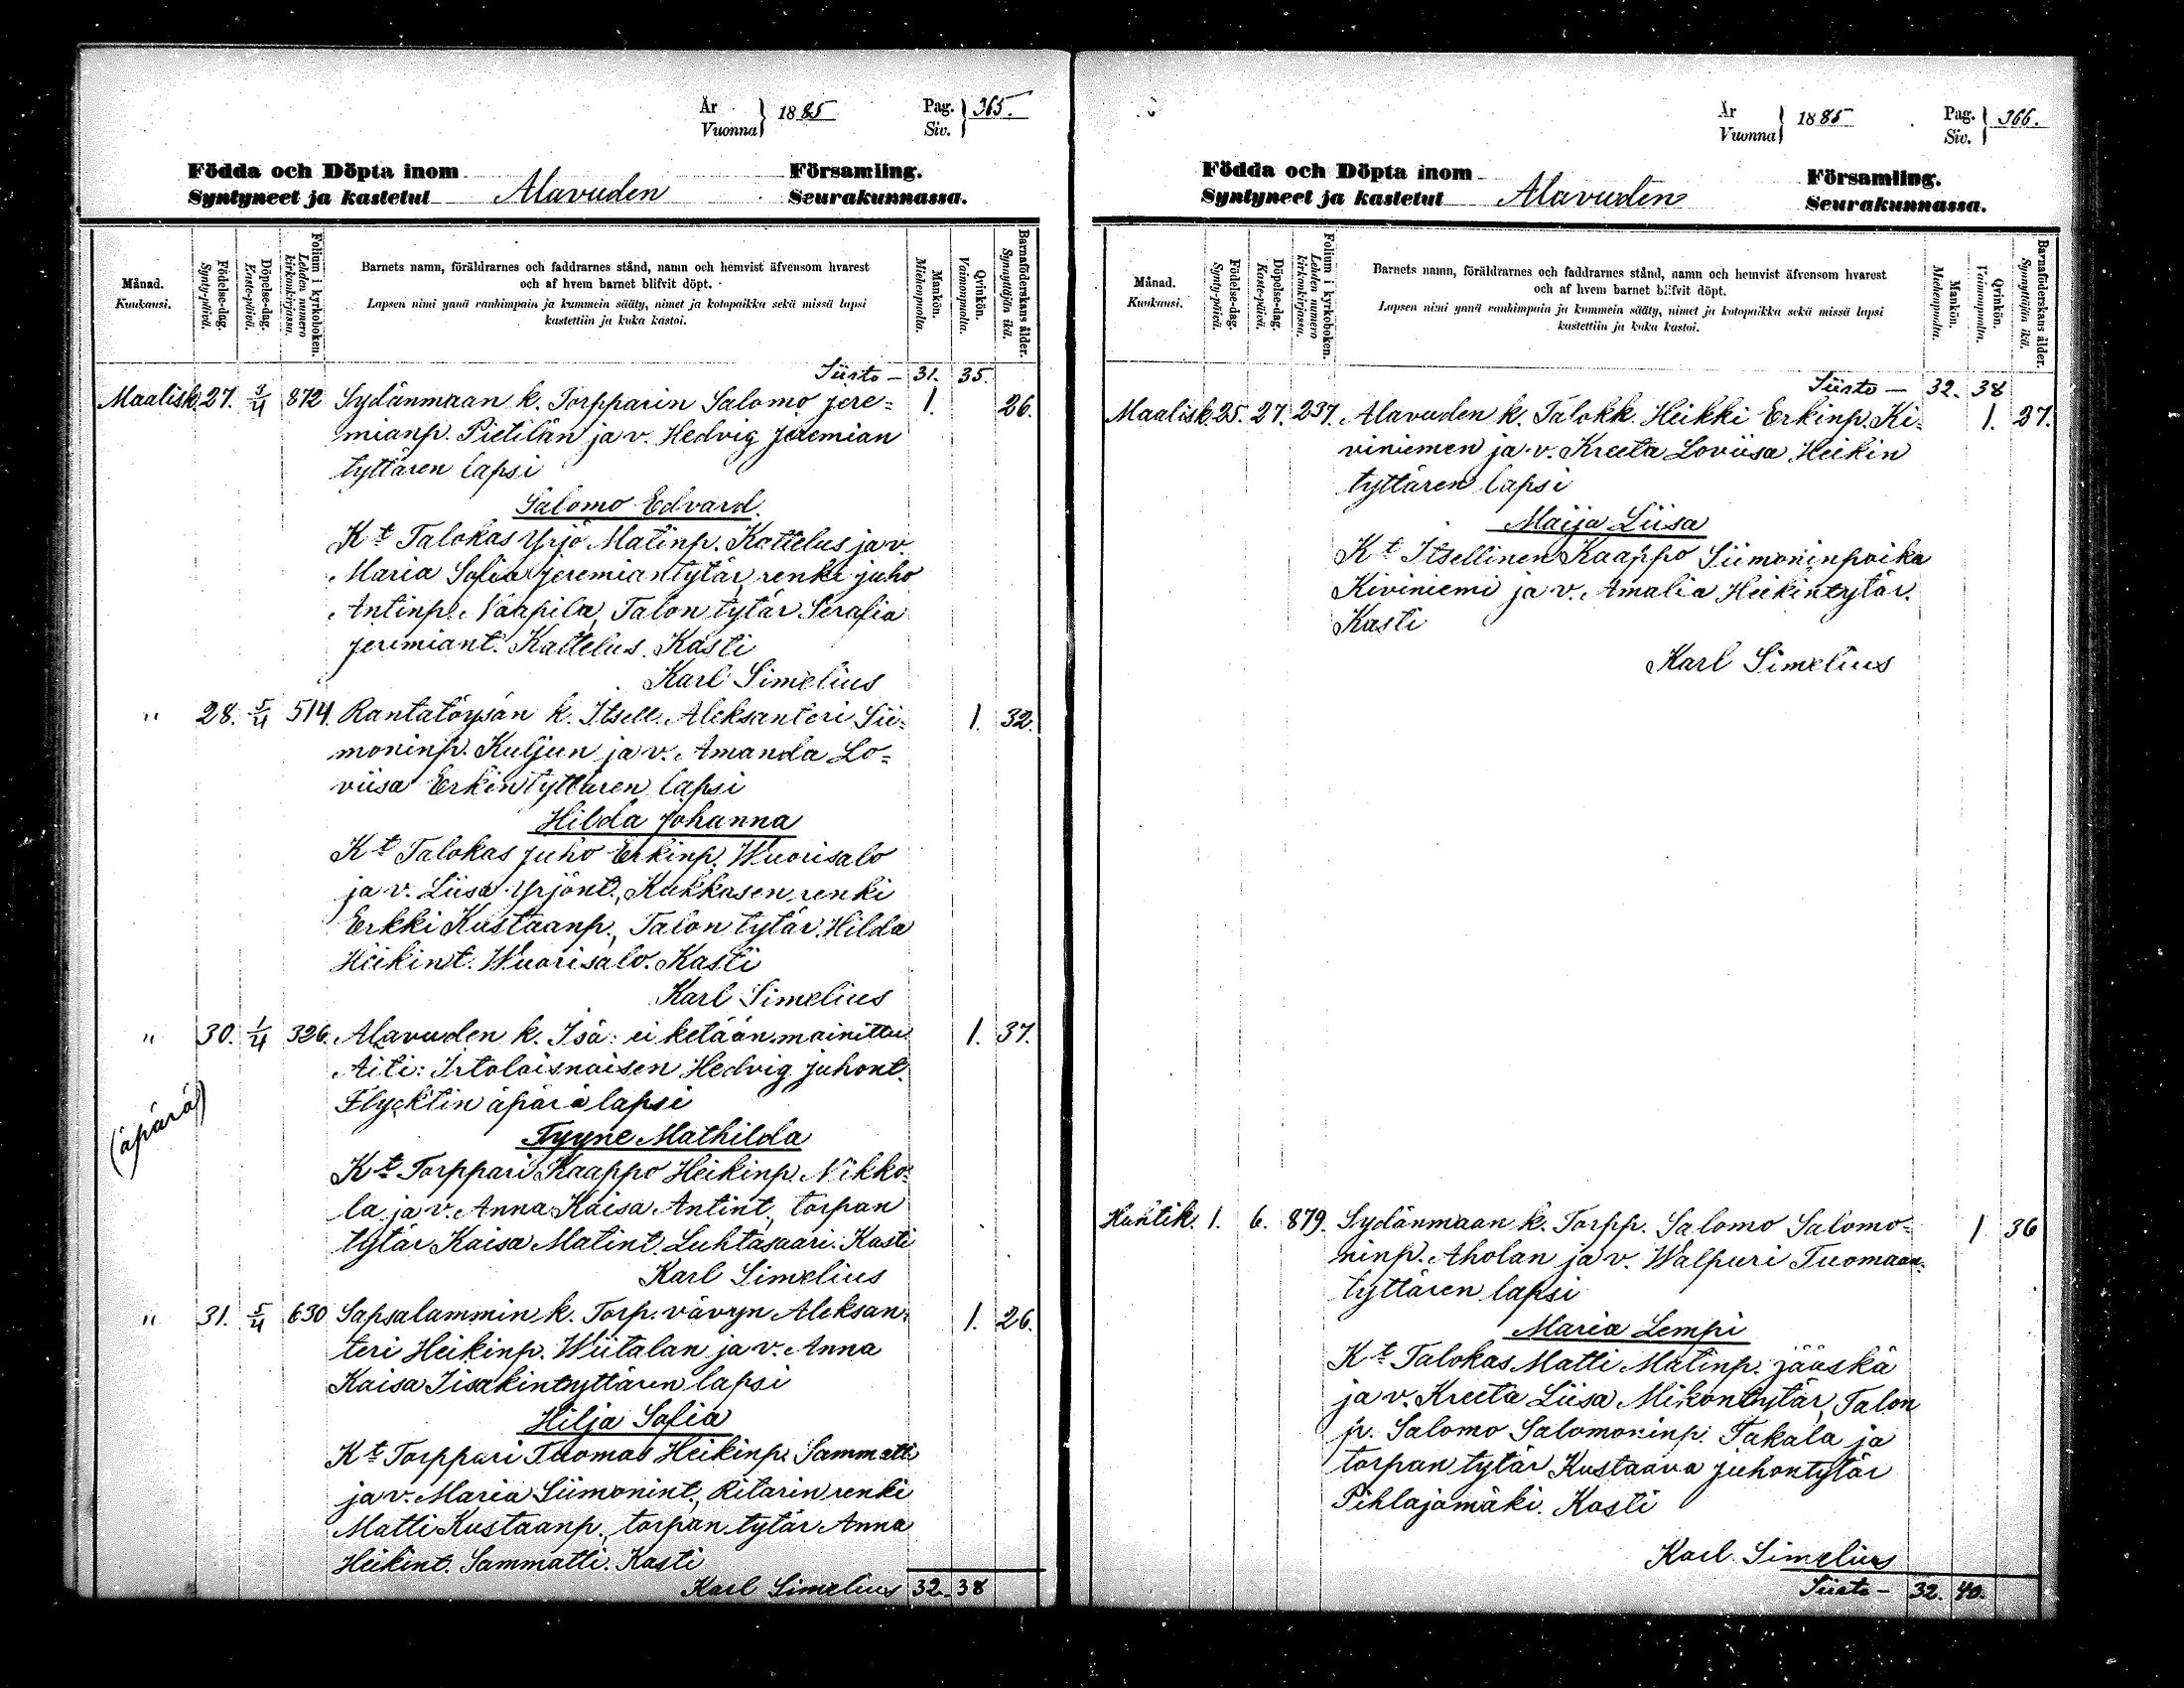 År
Vuonna } 1885
Pag.
Siv. } 365.
Födda och Döpta inom Församling.
Syntyneet ja kastetut Alavuden Seurakunnassa.
Månad.
Kuukausi.
Födelse-dag.
Synty-päivä.
Döpelse-dag.
Kaste-päivä.
Folium i kyrkoboken.
Lehden numero kirkonkirjassa.
Barnets namn, föräldrarnes och faddrarnes stånd, namn och hemvist äfvensom hvarest
och af hvem barnet blifvit döpt.
Lapsen nimi ynnä vanhimpain ja kummein sääty, nimet ja kotopaikka sekä missä lapsi
kastettiin ja kuka kastoi.
Mankön.
Miehenpuolta.
Qvinkön.
Vaimonpuolta.
Barnaföderskans ålder.
Synnyttäjän ikä.
Siirto — 31. 35.
Maalisk. 27. 3/4 872 Sydänmaan k. Torpparin Salomo Jere= 1. 26.
mianp. Pietilän ja v. Hedvig Jeremian
tyttären lapsi
Salomo Edvard.
Kt Talokas Yrjö Matinp. Kattelus ja v.
Maria Sofia Jeremiantytär, renki Juho
Antinp. Naapila, Talon tytär Serafia
Jeremiant. Kattelus. Kasti
Karl Simelius
" 28. 5/4 514. Rantatöysän k. Itsell. Aleksanteri Sii= 1. 32.
moninp. Kuljun ja v. Amanda Lo=
viisa Erkintyttären lapsi
Hilda Johanna
Kt Talokas Juho Erkinp. Wuorisalo
ja v. Liisa Yrjönt., Kukkasen renki
Erkki Kustaanp., Talon tytär Hilda
Heikint. Wuorisalo. Kasti
Karl Simelius
" 30. 1/4 326. Alavuden k. Isä: ei ketään mainittu 1. 37.
Äiti: Irtolaisnaisen Hedvig Juhont.
Flycktin äpärä lapsi
(äpärä)
Tyyne Mathilda
Kt Torppari Kaappo Heikinp. Nikko=
la ja v. Anna Kaisa Antint., torpan
tytär Kaisa Matint. Luhtasaari. Kasti
Karl Simelius
" 31. 5/4 630 Sapsalammin k. Torp. vävyn Aleksan= 1. 26.
teri Heikinp. Wiitalan ja v. Anna
Kaisa Iisakintyttären lapsi
Hilja Sofia
Kt Torppari Tuomas Heikinp. Sammatti
ja v. Maria Siimonint., Ritarin renki
Matti Kustaanp., torpan tytär Anna
Heikint. Sammatti. Kasti
Karl Simelius 32. 38
År
Vuonna } 1885
Pag.
Siv. } 366.
Födda och Döpta inom Församling.
Syntyneet ja kastetut Alavuden Seurakunnassa.
Månad.
Kuukausi.
Födelse-dag.
Synty-päivä.
Döpelse-dag.
Kaste-päivä.
Folium i kyrkoboken.
Lehden numero kirkonkirjassa.
Barnets namn, föräldrarnes och faddrarnes stånd, namn och hemvist äfvensom hvarest
och af hvem barnet blifvit döpt.
Lapsen nimi ynnä vanhimpain ja kummein sääty, nimet ja kotopaikka sekä missä lapsi
kastettiin ja kuka kastoi.
Mankön.
Miehenpuolta.
Qvinkön.
Vaimonpuolta.
Barnaföderskans ålder.
Synnyttäjän ikä.
Siirto — 32. 38
Maalisk. 25. 27. 237. Alavuden k. Talokk. Heikki Erkinp. Ki= 1. 27.
viniemen ja v. Kreeta Loviisa Heikin
tyttären lapsi
Maija Liisa
Kt Itsellinen Kaappo Siimoninpoika
Kiviniemi ja v. Amalia Heikintytär.
Kasti
Karl Simelius
Huhtik. 1. 6. 879. Sydänmaan k. Torpp. Salomo Salomo= 1 36
ninp. Aholan ja v. Walpuri Tuomaan=
tyttären lapsi
Maria Lempi
Kt Talokas Matti Matinp. Jääskä
ja v. Kreeta Liisa Mikontytär, Talon
p. Salomo Salomoninp. Takala ja
torpan tytär Kustaava Juhontytär
Pihlajamäki. Kasti
Karl Simelius
Siirto — 32. 40.